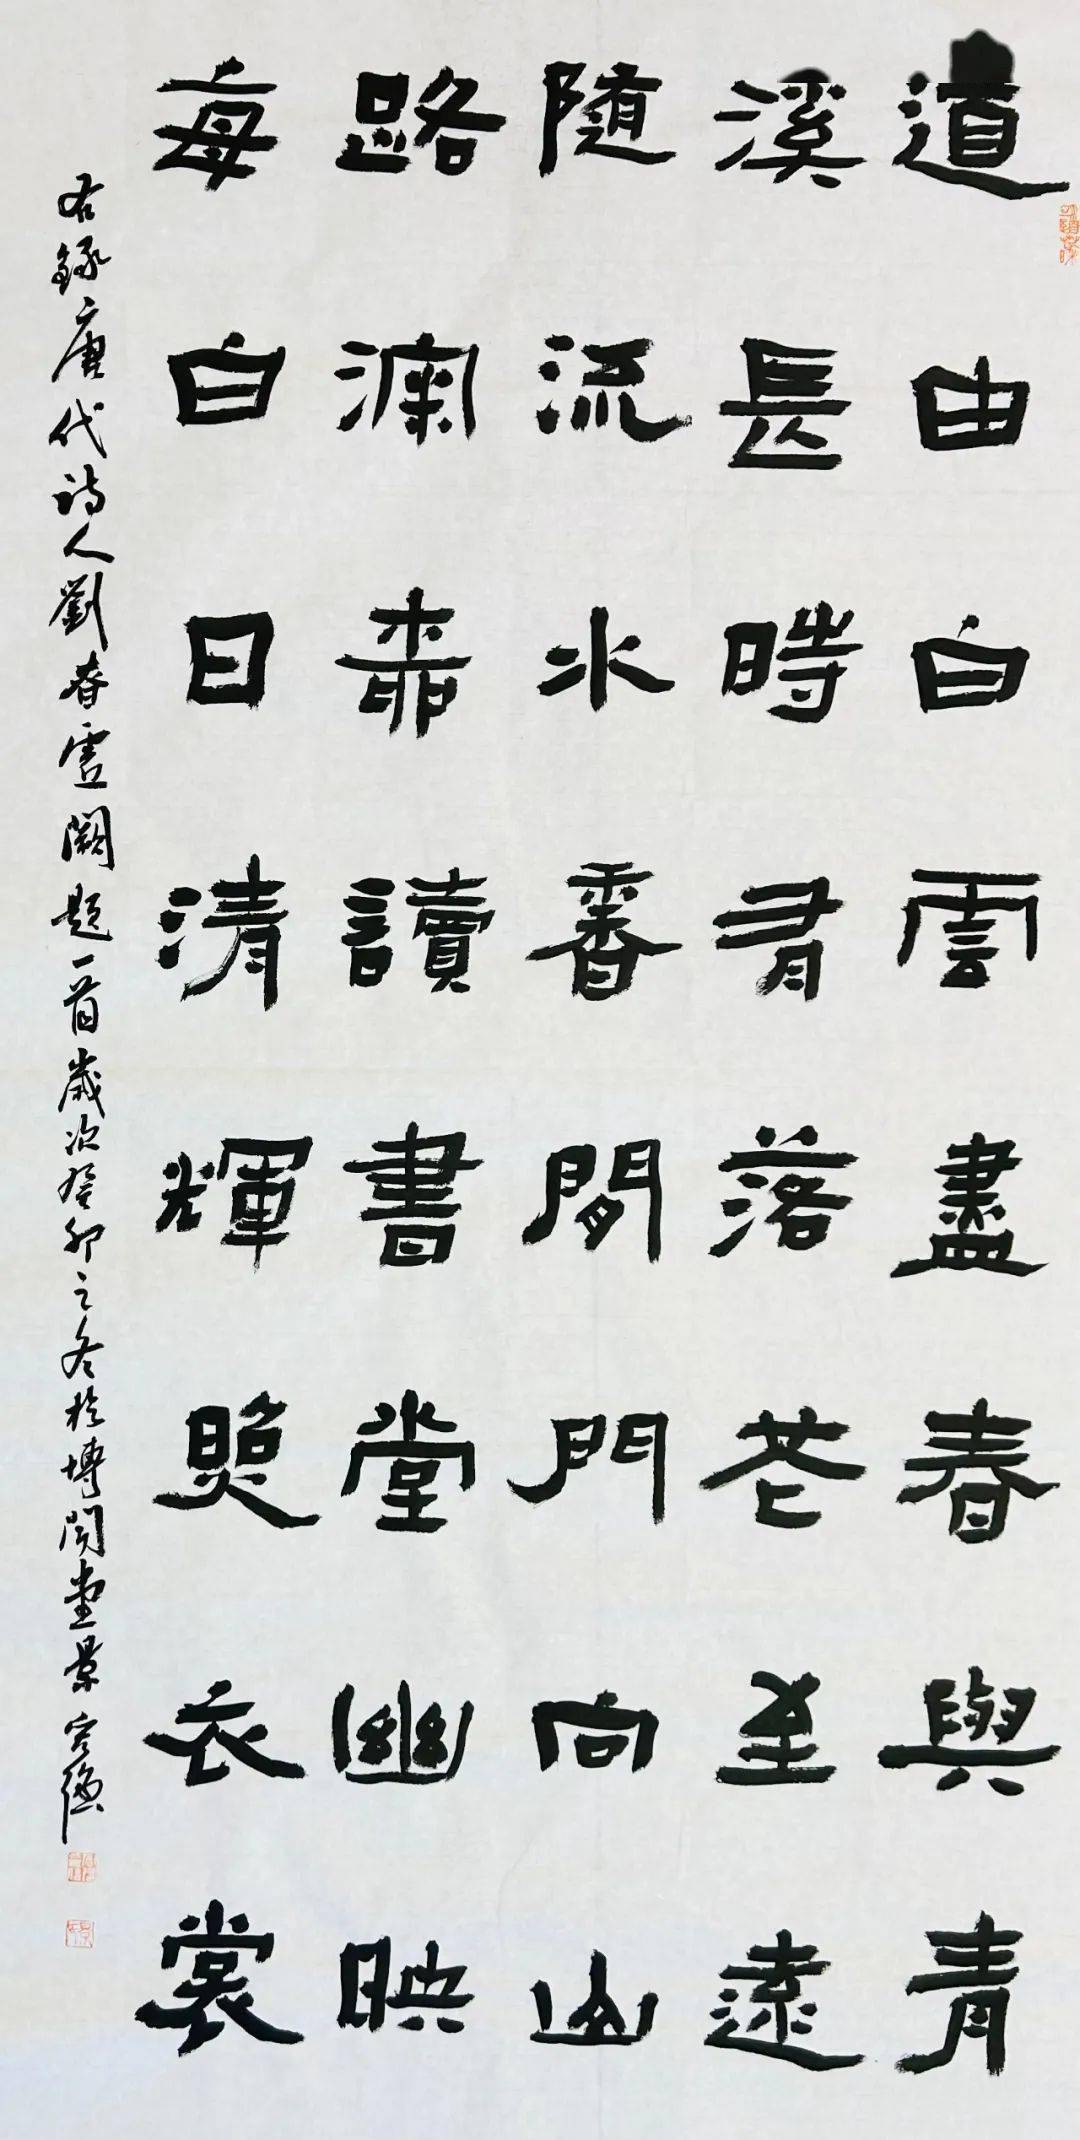 道由白雲盡春與青
溪長時有落花至遠
隨流水香閒門向山
路深柳讀書堂幽映
每白日清輝照衣裳
右錄唐代詩人劉眘虛闕題一首歲次癸卯之冬於博聞堂景